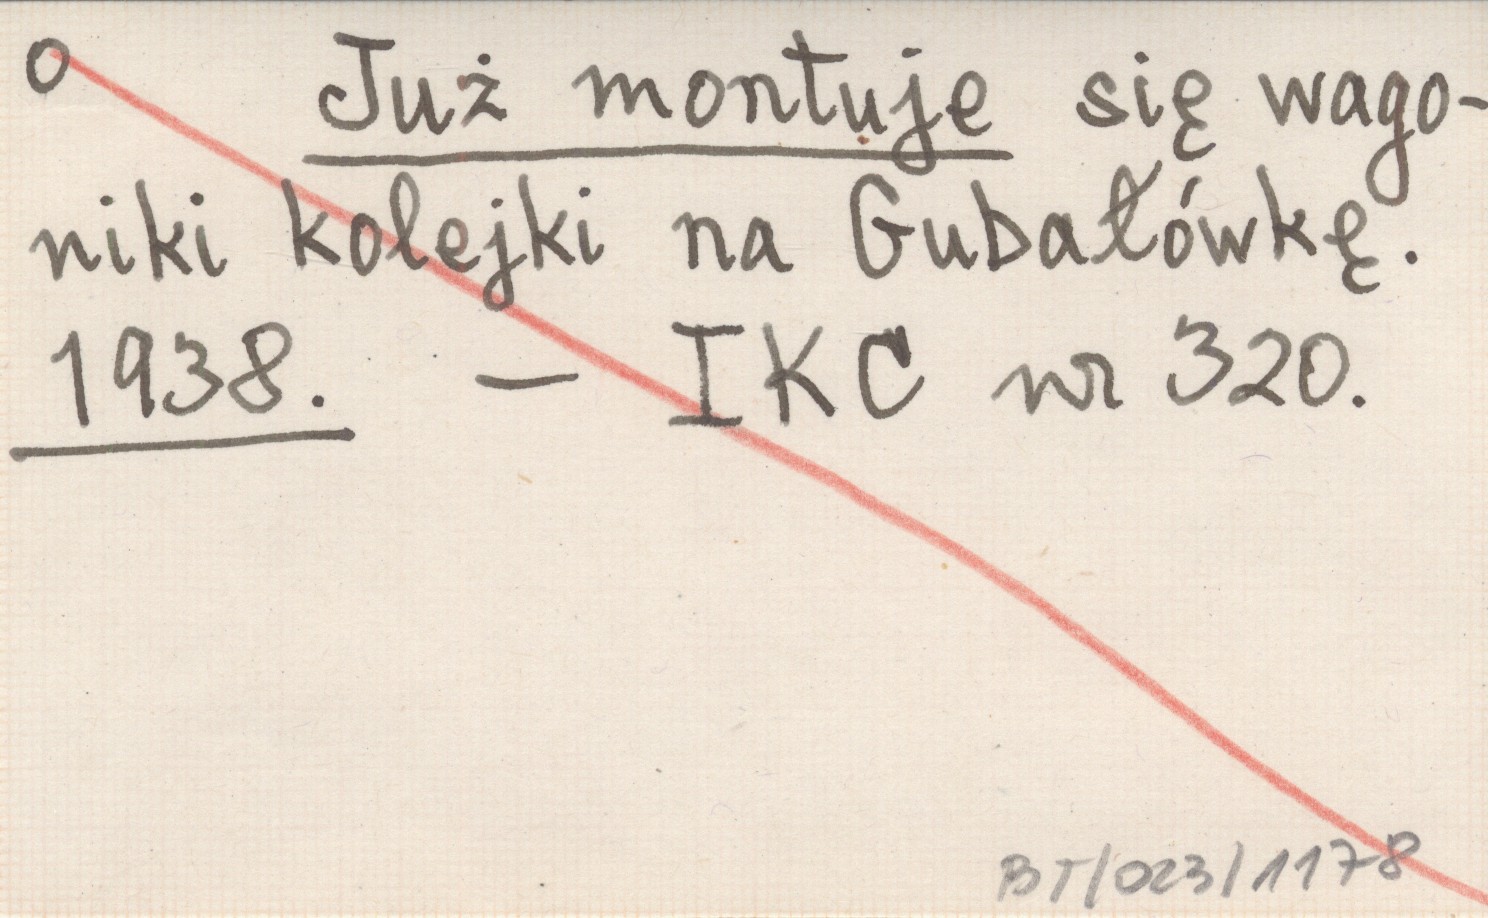 O Już montuje się wago-
niki kolejki na Gubałówkę.
1938. — IKC nr 320.
BT/023/1178